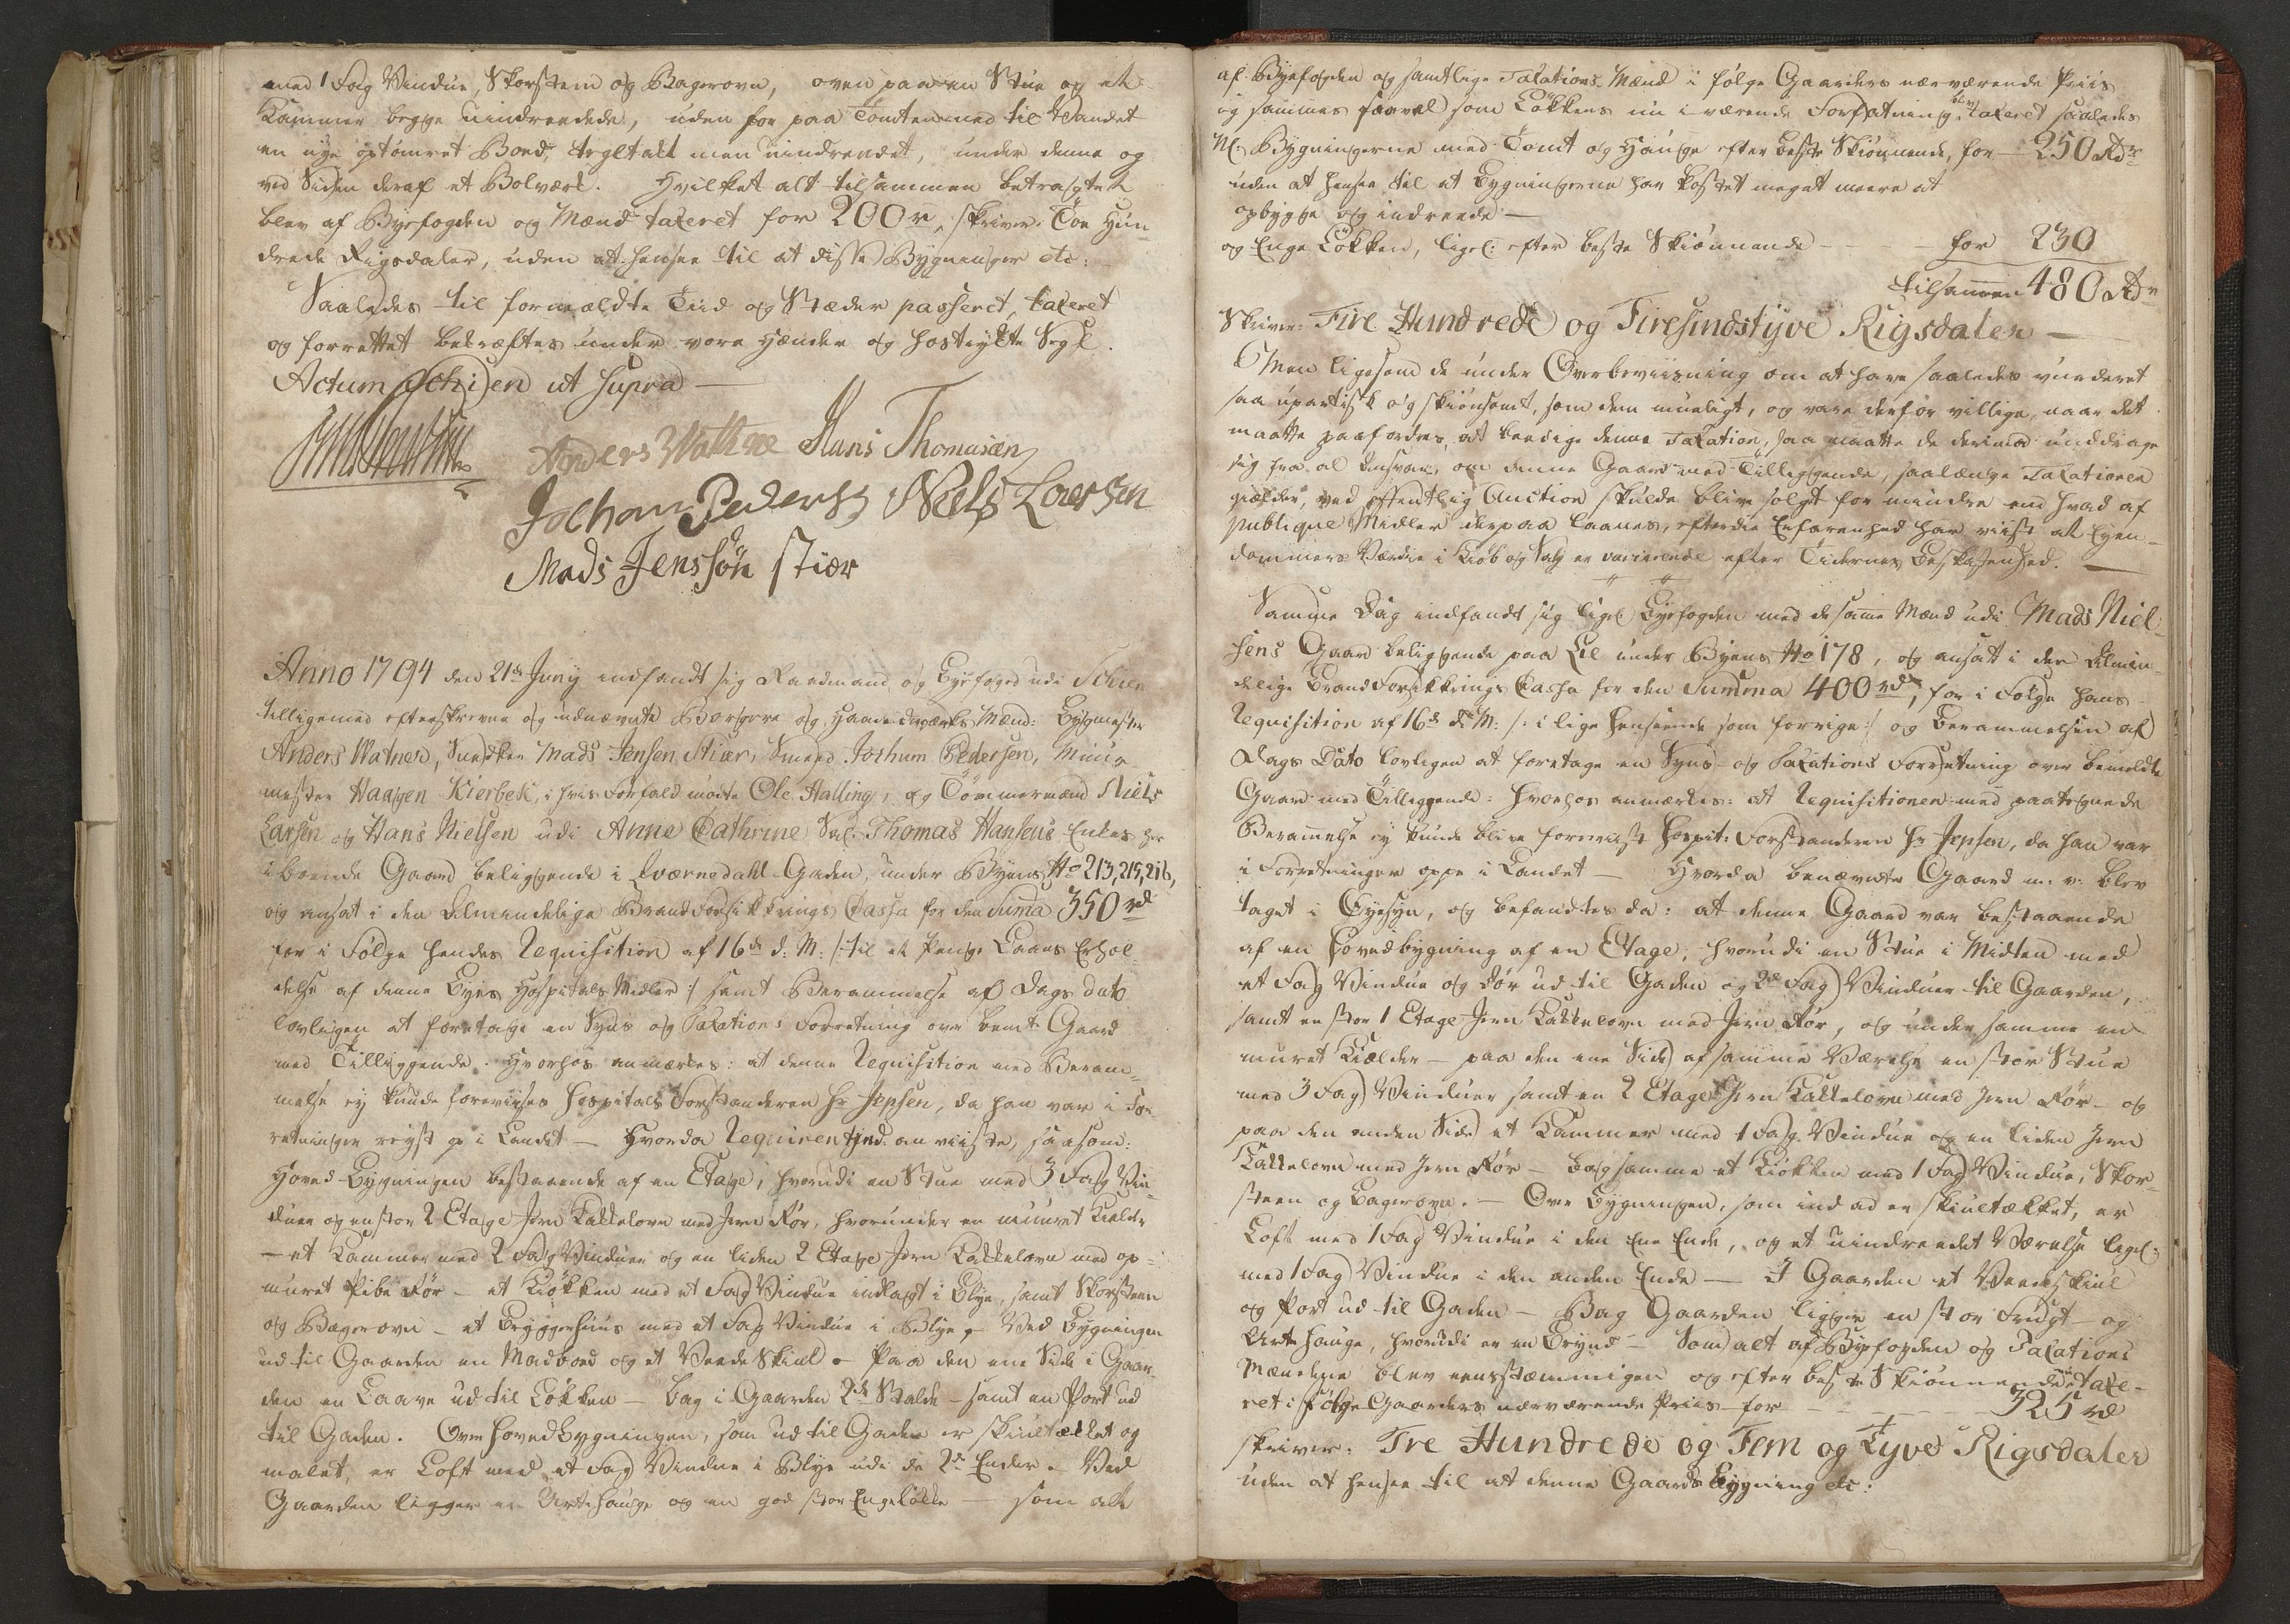 med 1 Fag Vindue, Skorsteen og Bagerovn, oven paa en Stue og et
Kammer begge uindreedede, uden for paa Tomten ned til Vandet
en nye optømret Boed, tegltakt men uindreedet, under denne og
ved Siden deraf et Bolværk. Hvilket alt tilsammen betragtet
blev af Byefogden og Mænd taxeret for 200 rd, skriver Toe Hun-
drede Rigsdaler, uden at hensee til at disse Bygninger etc:
Saaledes til formeldte Tiid og Stæder passeret, taxeret
og forrettet bekræftes under vore Hænder og hostrykte Segl.
Actum Schien ut supra —
Anders Wathne Hans Thomasen
Jochom Pedersen Niels Larsen
Mads Jenssøn Stiær
Anno 1794 den 21de Junij indfandt sig Raadmand og Byefoged udi Schien
tilligemed efterskrevne og udnævnte Borgere og Haandværks Mænd: Bygmester
Anders Watner, Snedker Mads Jensen Stiær, Smed Jochum Pedersen, Muur-
mester Haagen Kierbek, i hvis Forfald mødte Ole Halling, og Tømmermænd Niels
Larsen og Hans Nielsen udi Anne Cathrine Sal. Thomas Hansens Enkes her
iboende Gaard beliggende i Qværnedahl-Gaden, under Byens No 213, 215, 216,
og ansat i den Almindelige Brand Forsikkrings Cassa for den Suma 350 rd
for i Følge hendes Requisition af 16de d: M: /: til et Penge Laans Erhol-
delse af denne Byes Hospitals Midler :/ samt Berammelse af Dags dato
lovligen at foretage en Syns og Taxations Forretning over bemte Gaard
med Tilliggende. Hvorhos anmærkes: at denne Requisition med Beram-
melse ey kunde foreviises Hospitals Forstanderen Hr Jepsen, da han var i For-
retninger reyst op i Landet — Hvorda Requirentind: anviiste, saasom:
Hoved-Bygningen bestaaende af en Etage, hvorudi en Stue med 3 Fag Vin-
duer og en stor 2 Etage Jern Kakkelovn med Jern Rør, hvorunder en muuret Kielder
— et Kammer med 2 Fag Vinduer og en liden 2 Etage Jern Kakkelovn med op-
muret Pibe Rør — et Kiøkken med et Fag Vindue indlagt i Blye, samt Skorsteen
og Bagerovn — et Bryggerhuus med et Fag Vindue i Blye — Ved Bygningen
ud til Gaarden en Madboed og et Veede Skiul — Paa den ene Side i Gaar-
den en Laave ud til Løkken — bag i Gaarden 2de Stalde — samt en Port ud
til Gaden. Over Hovedbygningen, som ud til Gaden er skiultækket og
malet, er Loft med et Fag Vindue i Blye udi de 2de Ender. — Ved
Gaarden ligger en Urtehauge og en god stor Engeløkke — som alt
af Byefogden og samtlige Taxations-Mænd i følge Gaarders nærværende Priis
og sammes saavel som Løkkens nu i værende Forfatning blev taxeret saaledes
Nl. Bygningerne med Tomt og Hauge efter beste Skiønnende, for — 250 Rdr
uden at hensee til at Bygningerne har kostet meget meere at
opbygge og indreede —
og Enge Løkken, ligel: efter beste Skiønnende — for 230
tilsammen 480 Rdr
Skriver: Fire Hundrede og Firesindstyve Rigsdaler —
Men ligesom de under Overbeviisning om at have saaledes vurderet
saa upartisk og skiønsomt, som dem mueligt, og vare derfor villige, naar det
maatte paafordres, at beedige denne Taxation, saa maatte de derimod unddrage
sig fra al Ansvar, om denne Gaard med Tilliggende, saalænge Taxationen
gielder, ved offentlig Auction skulde blive solgt for mindre end hvad af
publique Midler derpaa laanes, efterdie Erfarenhed har viist at Eyen-
dommers Værdie i Kiøb og Salg er varierende efter Tidernes Beskaffenhed. —
Samme Dag indfandt sig ligel. Byefogden med desamme Mænd udi Mads Niel-
sens Gaard beliggende paa Lie under Byens No 178, og ansatt i den Almin-
delige Brand Forsikkrings Cassa for den Summa 400 rd, for i Følge hans
Requisition af 16de ds M: /: i lige Henseende som forrige :/ og Berammelsen af
Dags Dato lovligen at foretage en Syns- og Taxations Forretning over bemeldte
Gaard med Tilliggende: hvorhos anmærkes: at Requisitionen med paategnede
Berammelse ey kunde blive foreviist Hospit: Forstanderen Hr Jepsen, da han var
i Forretninger oppe i Landet — Hvorda benævnte Gaard m. v. blev
taget i Øyesyn, og befandtes da: at denne Gaard var bestaaende
af en Hovedbygning af en Etage; hvorudi en Stue i Midten med
et Fag Vindue og Dør ud til Gaden og 2de Fag Vinduer til Gaarden,
samt en stor 1 Etage Jern Kakkelovn med Jern Rør, og under samme en
muret Kielder — paa den ene Side af samme Værelse en stor Stue
med 3 Fag Vinduer samt en 2 Etage Jern Kakkelovn med Jern Rør — og
paa den anden Side et Kammer med 1 Fag Vindue og en liden Jern
Kakkelovn med Jern Rør — bag samme et Kiøkken med 1 Fag Vindue, Skor-
steen og Bagerovn. — Over Bygningen, som ind ad er skiultækket, er
Loft med 1 Fag Vindue i den Ene Ende, og et uindreedet Værelse ligel:
med 1 Fag Vindue i den anden Ende — I Gaarden et Veedskiul
og Port ud til Gaden — Bag Gaarden ligger en stor Frugt- og
Urtehauge, hvorudi er en Brynd — Som alt af Byefogden og Taxations
Mændene blev eenstemmigen og efter beste Skiønnende taxe-
ret i Følge Gaarders nærværende Priis — for — 325 rd
skriver: Tre Hundrede og Fem og Tyve Rigsdaler
uden at hensee til at denne Gaards Bygning etc: